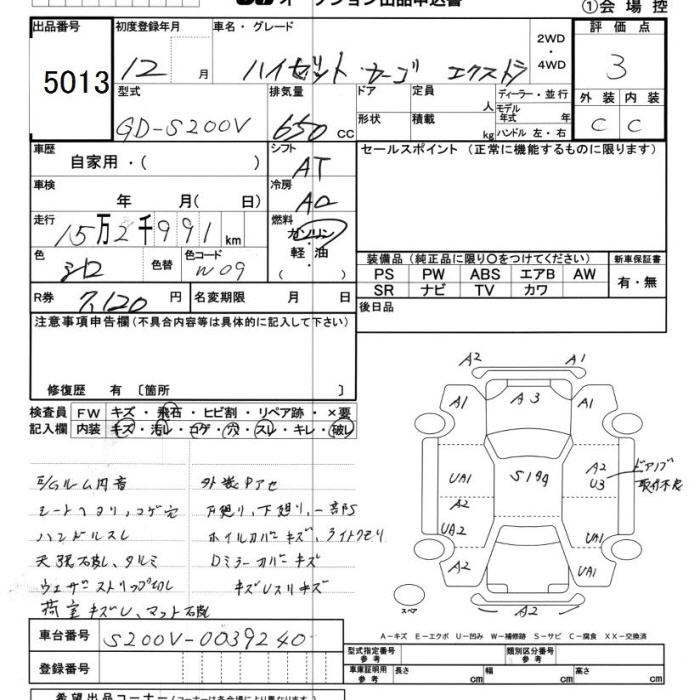 オークション出品申込書
①会場控
出品番号 初度登録年月 車名・グレード 評価点
5013 12 月 ハイゼット・カーゴ エクストラ 2WD・4WD 3
型式 排気量 ドア 定員 人 ディーラー・並行 外装 内装
GD-S200V 650 cc 形状 積載 kg モデル年式 年 ハンドル 左・右 C C
車歴 自家用・( ) シフト AT セールスポイント (正常に機能するものに限ります)
車検 年 月( 日) 冷房 AC
走行 15万2千991 km 燃料 ガソリン・軽油 ( )
色 シロ 色替 色コード W09 装備品 (純正品に限り○をつけてください) 新車保証書
PS PW ABS エアB AW 有・無
SR ナビ TV カワ
R券 7,120 円 名変期限 月 日 後日品
注意事項申告欄 (不具合内容等は具体的に記入して下さい)
修復歴 有 〔箇所 〕
検査員 FW キズ・飛石・ヒビ割・リペア跡・×要
記入欄 内装 キズ・汚レ・コゲ・穴・スレ・キレ・破レ
E/Gルーム内音 外装Pアセ
シートヘタリ、コゲ穴 下廻り、一部S
ハンドルスレ ホイルカバーキズ、ライトクモリ
天張破レ、タルミ Dミラーカバーキズ
ウェザーストリップ切レ キズUスリキズ
荷室キズU、マット破レ
A2 A1
A1 A3 A1
UA1 S199 A2 U3 ドアノブ取付不良
A2
UA2 UA1
A2 UA1
A2
スペア
A-キズ E-エクボ U-凹み W-補修跡 S-サビ C-腐食 XX-交換済
車台番号 S200V-0039240
型式指定番号 参考 類別区分番号 参考
登録番号 車庫証明用 参考 長さ cm 幅 cm 高さ cm
希望出品コーナー